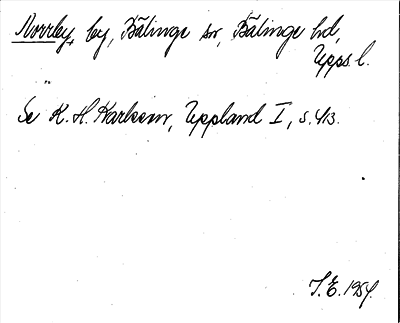 Norrby, by, Bälinge sn, Bälinge hd,
Upps l.
Se K. H. Karlsson, Uppland I, s. 413.
S. E. 1954.